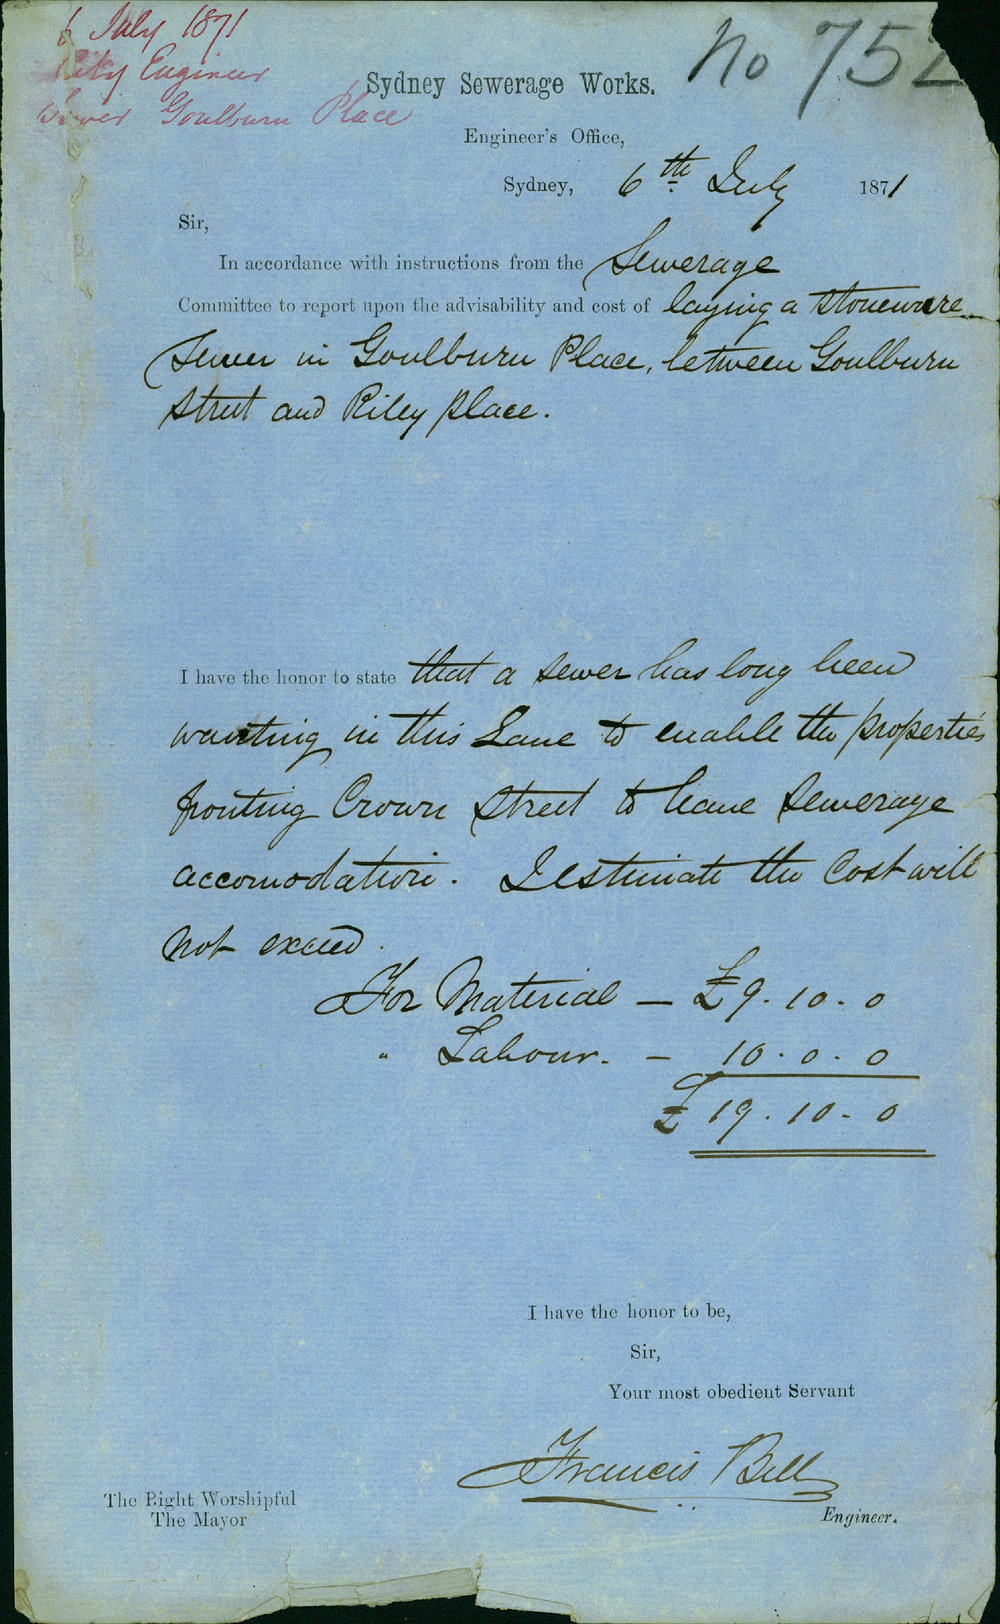 6 July 1871
City Engineer
Sewer Goulburn Place
No 752
Sydney Sewerage Works.
Engineer's Office,
Sydney, 6th July 1871
Sir,
In accordance with instructions from the Sewerage
Committee to report upon the advisability and cost of laying a stoneware
Sewer in Goulburn Place, between Goulburn
Street and Riley place.
I have the honor to state that a sewer has long been
wanting in this Lane to enable the properties
fronting Crown Street to have Sewerage
accomodation. I estimate the Cost will
not exceed.
For Material — £9.10.0
" Labour. — 10.0.0
£19.10.0
I have the honor to be,
Sir,
Your most obedient Servant
Francis Bell
Engineer.
The Right Worshipful
The Mayor